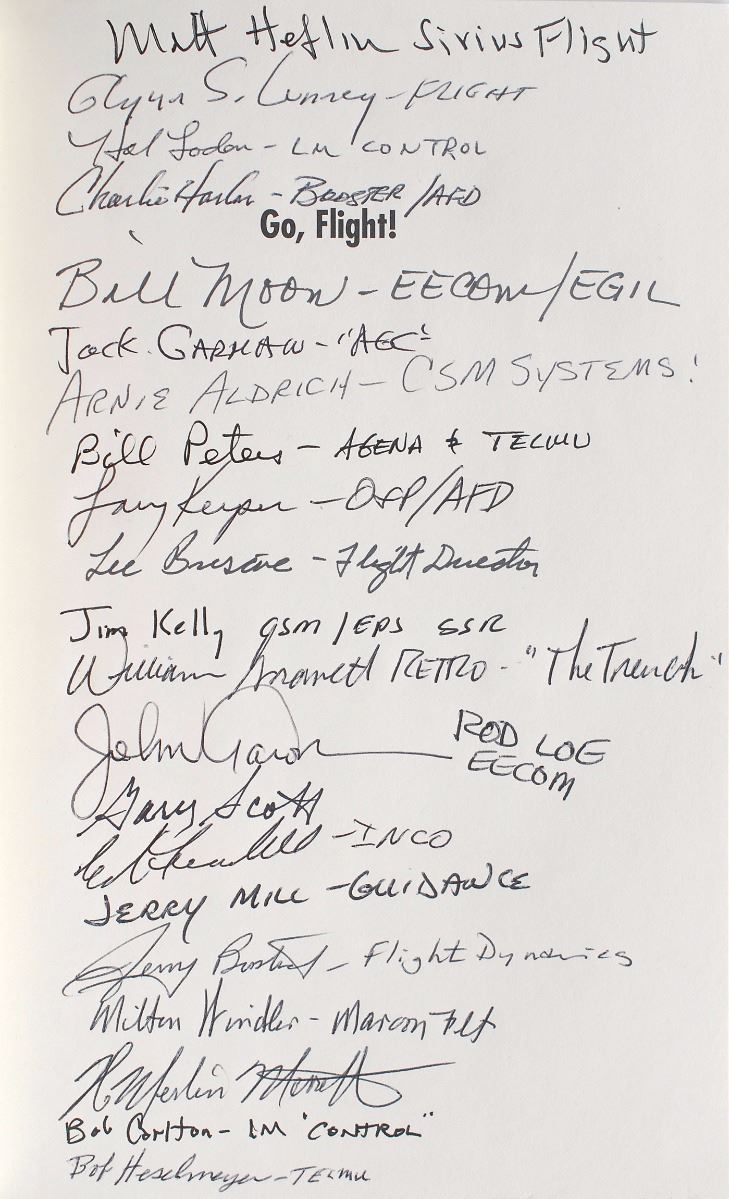 Matt Heflin Sirius Flight
Glynn S. Lunney - FLIGHT
Hal Loden - LM CONTROL
Charlie Harlan - BOOSTER/AFD
Go, Flight!
Bill Moon - EECOM/EGIL
Jack GARMAN - "AGC"
ARNIE ALDRICH - CSM SYSTEMS!
Bill Peters - AGENA & TELMU
Larry Keyser - O&P/AFD
Lee Briscoe - Flight Director
Jim Kelly GSM/EPS SSR
William RETRO - "The Trench"
John Aaron
ROD LOE
EECOM
Gary Scott
Ed Fendell - INCO
JERRY MILL - GUIDANCE
Jerry Bostick - Flight Dynamics
Milton Windler - Maroon Flt
H Merlin Merritt
Bob Carlton - LM "CONTROL"
Bob Heselmeyer - TELMU